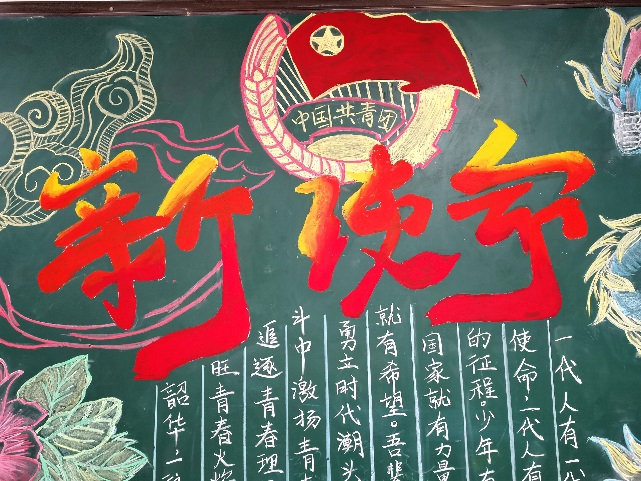 中国共青团
新使命
一代人有一代
使命,一代人有
的征程。少年有
国家就有力量
就有希望。吾辈
勇立时代潮头
斗中激扬青
追逐青春理
旺青春火炬
韶华,一